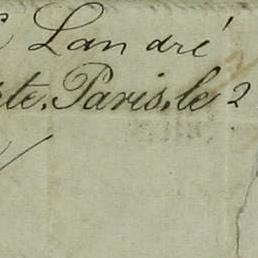 Landré
te, Paris, le 2